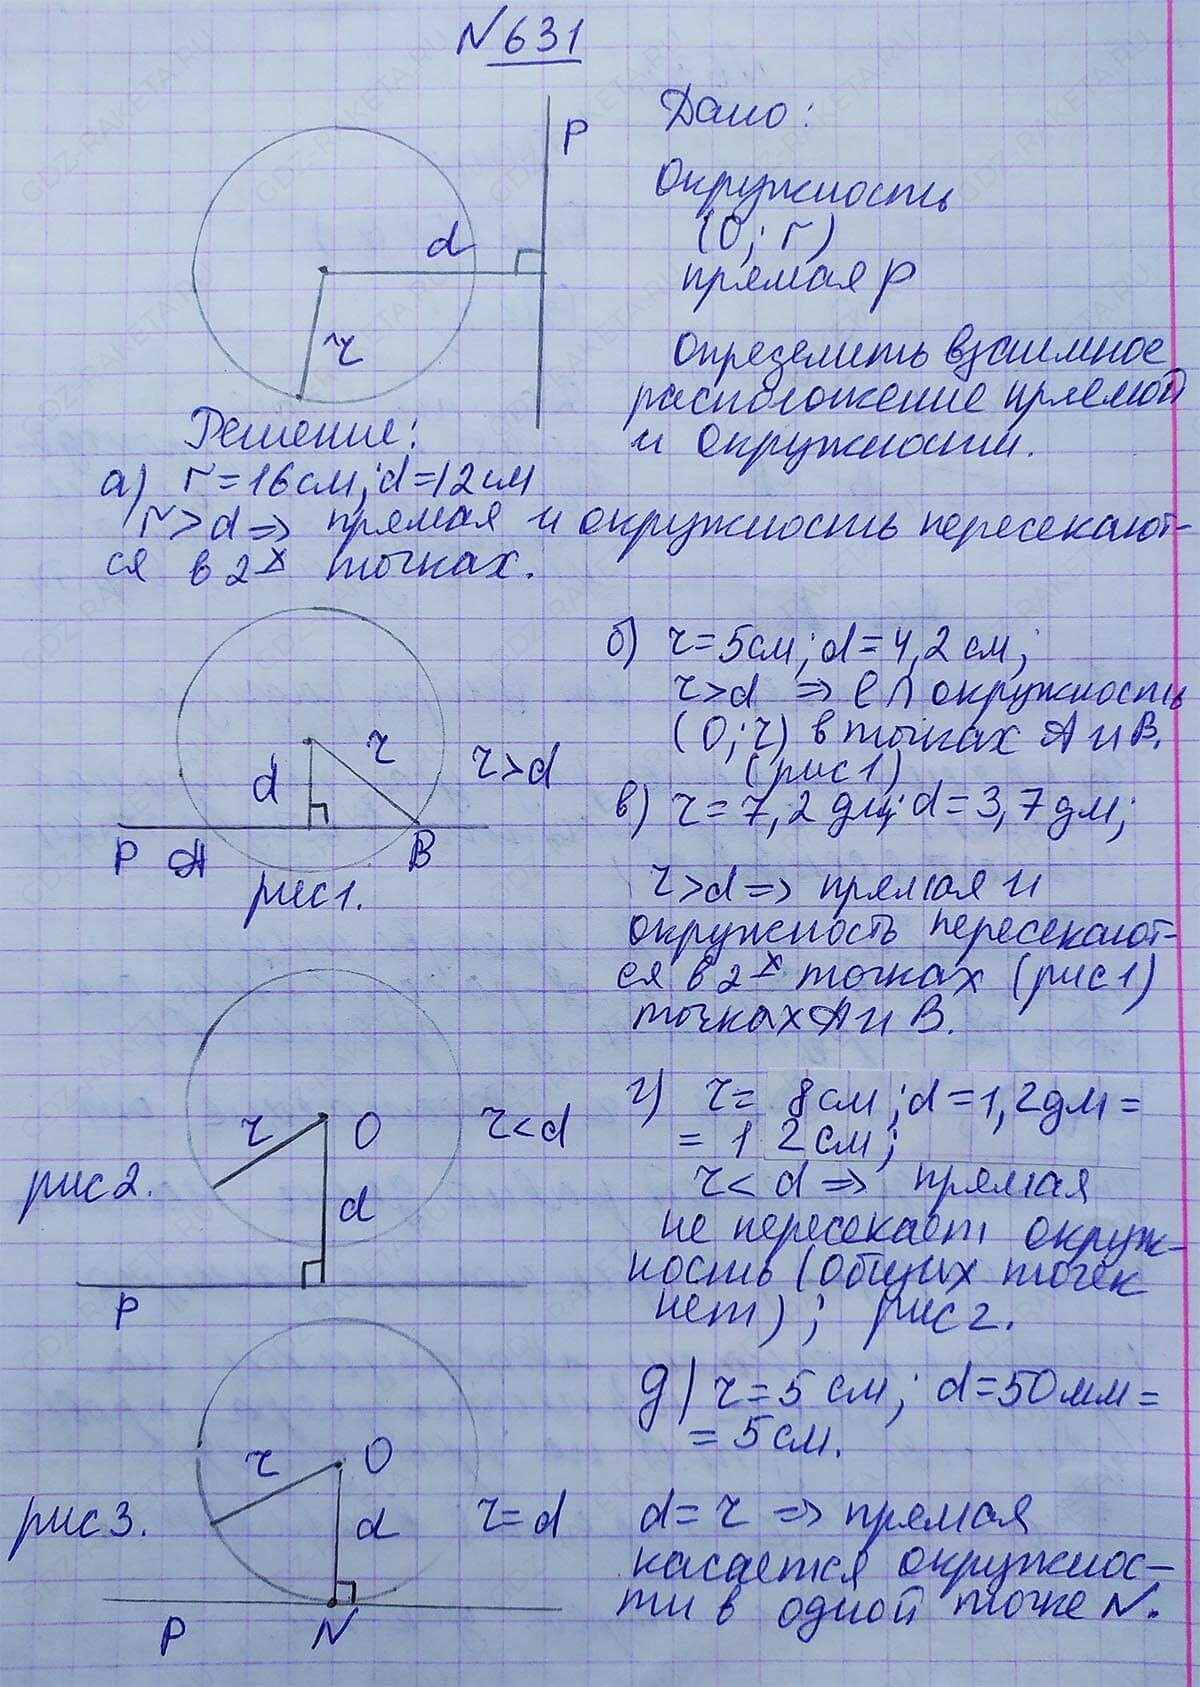 N 631
P
d
r
Дано:
Окружность
(O; r)
прямая p
Определить взаимное
расположение прямой
и окружности.
Решение:
а) r=16см; d=12см
r>d => прямая и окружность пересекают-
ся в 2х точках.
d
r
r>d
P A B
рис1.
б) r=5см; d=4,2см;
r>d => l ∩ окружность
(O; r) в точках A и B.
(рис1)
в) r=7,2дм; d=3,7дм;
r>d => прямая и
окружность пересекают-
ся в 2х точках (рис1)
точках A и B.
r O r<d
рис2.
d
P
г) r= 8см; d=1,2дм=
= 12см;
r< d => прямая
не пересекает окруж-
ность (общих точек
нет); рис2.
r O
рис3. d r=d
P N
д) r=5см; d=50мм=
=5см.
d=r => прямая
касается окружнос-
ти в одной точке N.
GDZ-RAKETA.RU